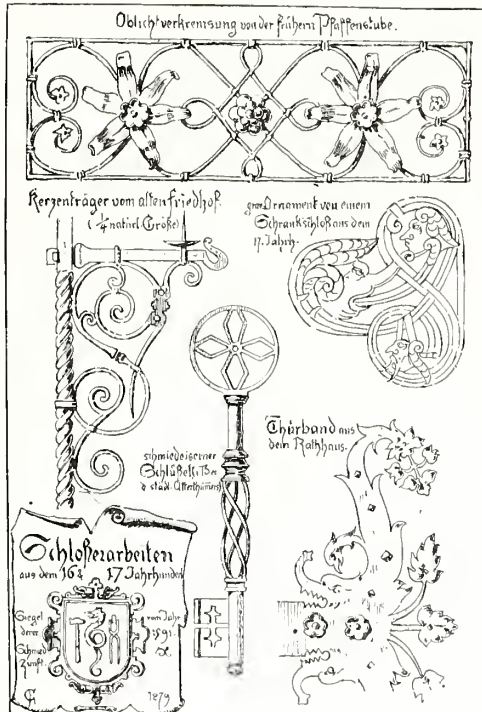 Oblichtverkremsung von der frühern Pfaffenstube.
Kerzenträger vom alten Friedhof.
(¼ natürl. Größe)
grav. Ornament von einem
Schrankschloß aus dem
17. Jahrh.
schmiedeiserner
Schlüßel i. Bes.
d. städt.
Thürband aus
dem Rathhaus.
Schloßerarbeiten
aus dem 16 & 17 Jahrhundert
Siegel
derer
Schmied
Zunft.
vom Jahr
1591.
1879